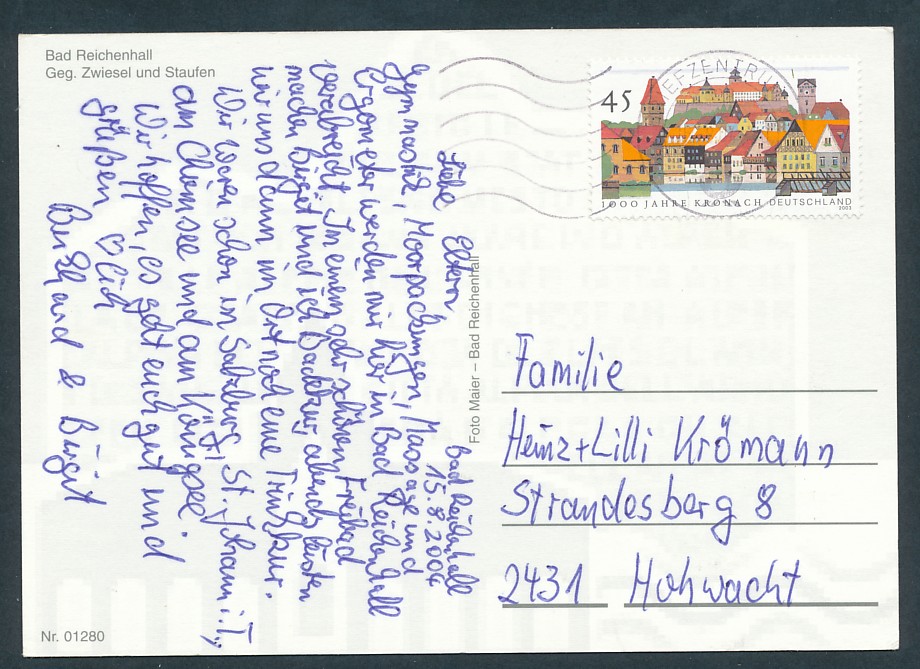 Bad Reichenhall
Geg. Zwiesel und Staufen
BRIEFZENTRUM
45
1000 JAHRE KRONACH DEUTSCHLAND
2003
Bad Reichenhall
15.8.2004
Liebe Eltern,
Gymnastik, Moorpackungen, Massage und
Ergometer werden mir hier in Bad Reichenhall
verabreicht. In einem sehr schönen Freibad
machen Birgit und ich Badekur, abends leisten
wir uns dann im Ort noch eine Trinkkur.
Wir waren schon in Salzburg, St. Johann i. T.,
am Chiemsee und am Königssee.
Wir hoffen, es geht euch gut und
grüßen ♡lich
Bernhard & Birgit
Foto Maier – Bad Reichenhall
Familie
Heinz + Lilli Krömann
Strandesberg 8
2431 Hohwacht
Nr. 01280